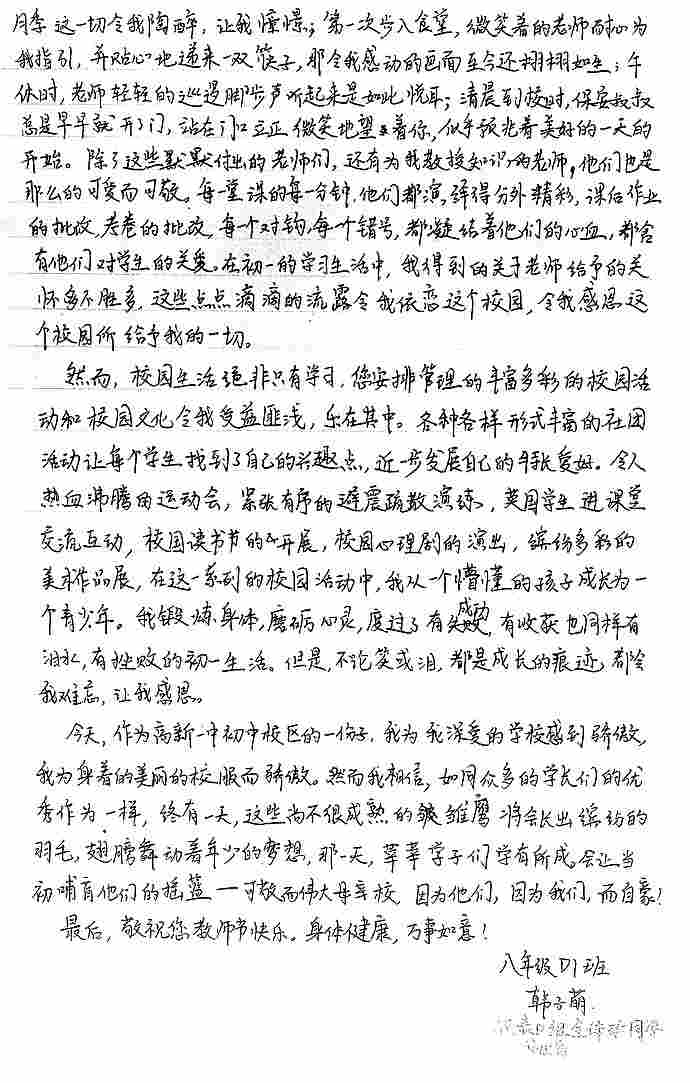 月季这一切令我陶醉,让我憧憬;第一次步入食堂,微笑着的老师耐心为
我指引,并贴心地递来一双筷子,那令我感动的画面至今还栩栩如生;午
休时,老师轻轻的巡逻脚步声听起来是如此悦耳;清晨到校时,保安叔叔
总是早早就开了门,站在门口立正微笑地望着你,似乎预兆着美好的一天的
开始。除了这些默默付出的老师们,还有为我教授知识的老师,他们也是
那么的可爱而可敬。每一堂课的每一分钟,他们都演绎得分外精彩,课后作业
的批改,考卷的批改,每个对钩,每个错号,都凝结着他们的心血,都含
有他们对学生的关爱。在初一的学习生活中,我得到的关于老师给予的关
怀多不胜多,这些点点滴滴的流露令我依恋这个校园,令我感恩这
个校园所给予我的一切。
然而,校园生活绝非只有学习,您安排管理的丰富多彩的校园活
动和校园文化令我受益匪浅,乐在其中。各种各样形式丰富的社团
活动让每个学生找到了自己的兴趣点,近一步发展自己的特长爱好。令人
热血沸腾的运动会,紧张有序的避震疏散演练,英国学生进课堂
交流互动,校园读书节的开展,校园心理剧的演出,缤纷多彩的
美术作品展,在这一系列的校园活动中,我从一个懵懂的孩子成长为一
个青少年。我锻炼身体,磨砺心灵,度过了有成功,有收获也同样有
泪水,有挫败的初一生活。但是,不论笑或泪,都是成长的痕迹,都令
我难忘,让我感恩。
今天,作为高新一中初中校区的一份子,我为我深爱的学校感到骄傲,
我为身着的美丽的校服而骄傲。然而我相信,如同众多的学长们的优
秀作为一样,终有一天,这些尚不很成熟的雏鹰将会长出缤纷的
羽毛,翅膀舞动着年少的梦想,那一天,莘莘学子们学有所成,会让当
初哺育他们的摇篮——可敬而伟大母亲校,因为他们,因为我们,而自豪!
最后,敬祝您教师节快乐。身体健康,万事如意!
八年级D1班
韩子萌